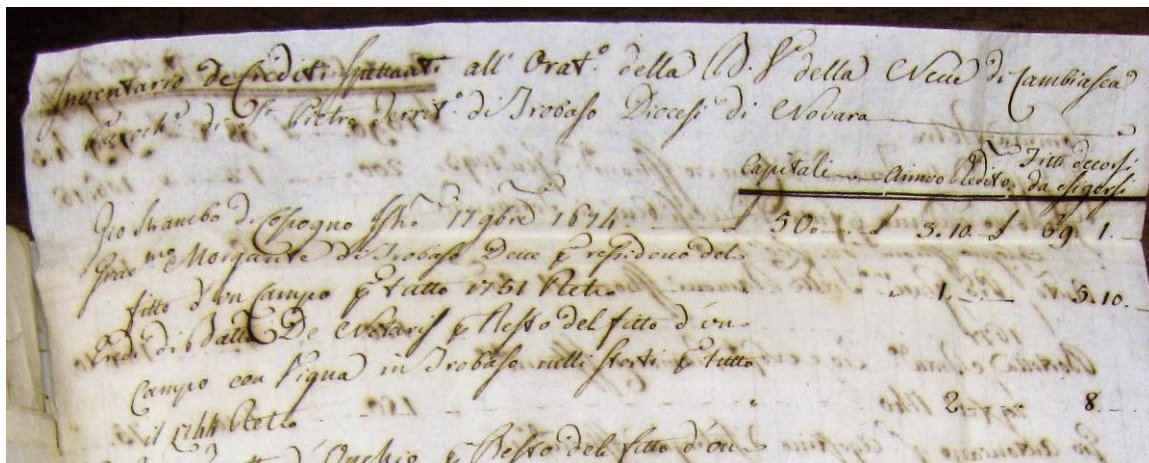 Inventario de Crediti spettanti all' Orat.º della B. V. della Neve di Cambiasca
Parroch.ª di S. Pietro Territ.º di Trobaso Diocesi di Novara
Capitali Annuo Redito Fitti decorsi da esigersi
Gio Strambo di Cossogno 17 9bre 1674 50 3.10 69.1
Morgante di Trobaso Deve p residuo del
fitto d'un Campo p tutto 1751 1 5.10
Eredi di Batta De Notaris p Resto del fitto d'un
Campo con Vigna in Trobaso p tutto
il 1744 2 8
p Resto del fitto d'un